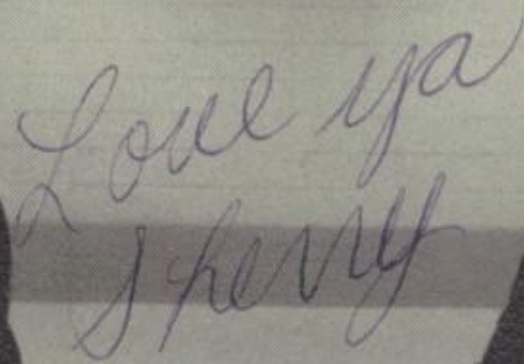 Love ya
Sherry